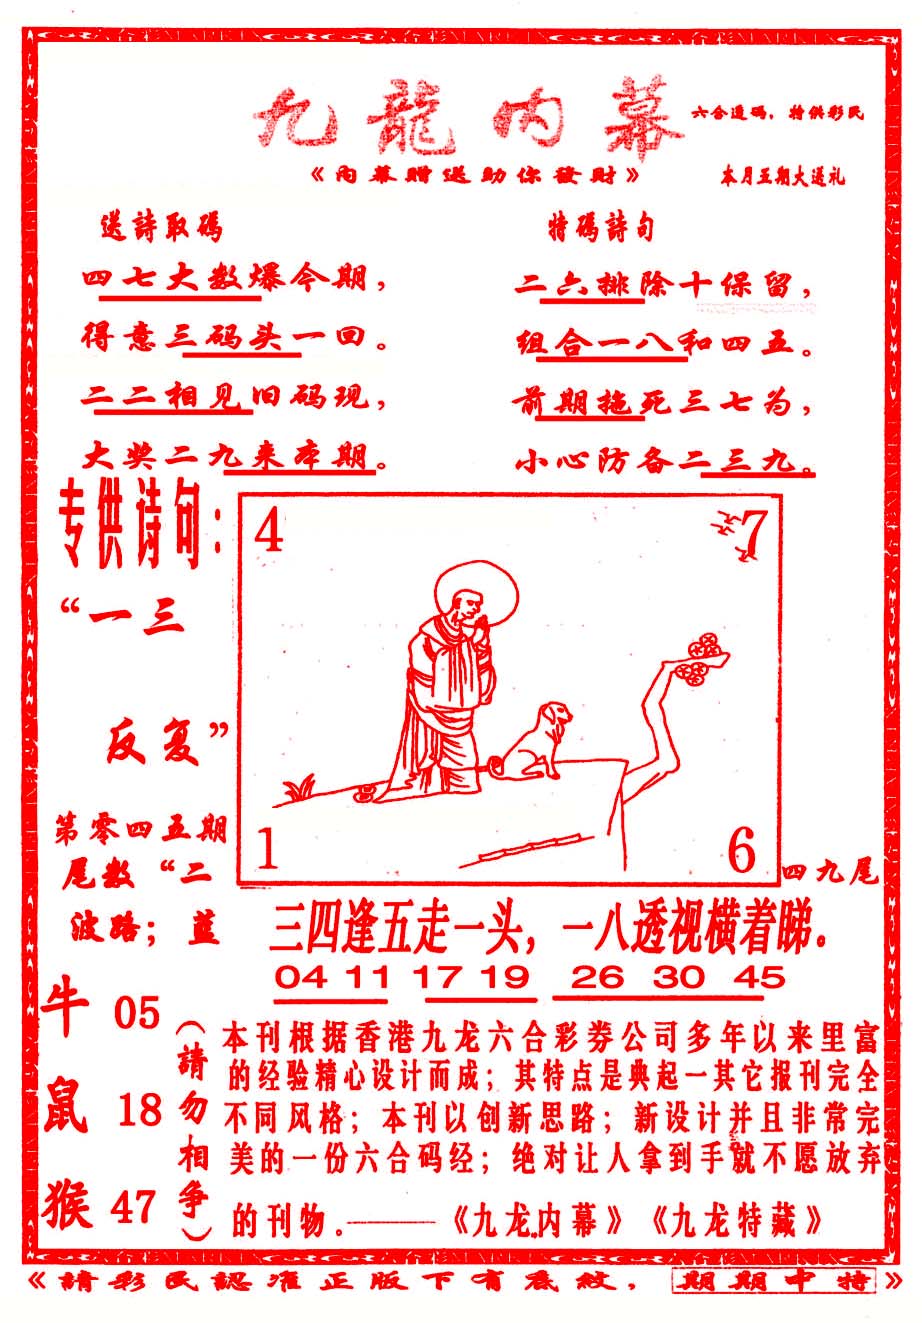 九龍内幕
六合透碼，特供彩民
《内幕贈送助你發財》
本月五期大送礼
送詩取碼
四七大数爆今期，
得意三码头一回。
二二相见旧码现，
大奖二九来本期。
特碼詩句
二六排除十保留，
组合一八和四五。
前期拖死三七为，
小心防备二三九。
专供诗句：
“一三
反复”
第零四五期
尾数“二
四九尾
波路；蓝
4
7
1
6
三四逢五走一头，一八透视横着睇。
04 11 17 19 26 30 45
牛 05
鼠 18
猴 47
（請勿相争）
本刊根据香港九龙六合彩券公司多年以来里富
的经验精心设计而成；其特点是典起一其它报刊完全
不同风格；本刊以创新思路；新设计并且非常完
美的一份六合码经；绝对让人拿到手就不愿放弃
的刊物。———《九龙内幕》《九龙特藏》
《請彩民認准正版下有底紋，期期中特》